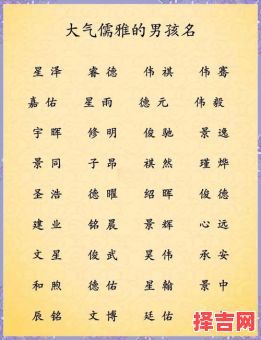 大气儒雅的男孩名
星泽 睿德 伟祺 伟骞
嘉佑 星雨 德元 伟毅
宇晖 修明 俊驰 景逸
景同 子昂 祺然 瑾烨
圣浩 德曜 绍晖 俊德
建业 铭晨 景辉 心远
文星 俊武 昊伟 承安
和煦 德佑 星翰 景中
辰铭 文博 廷佑
择吉网